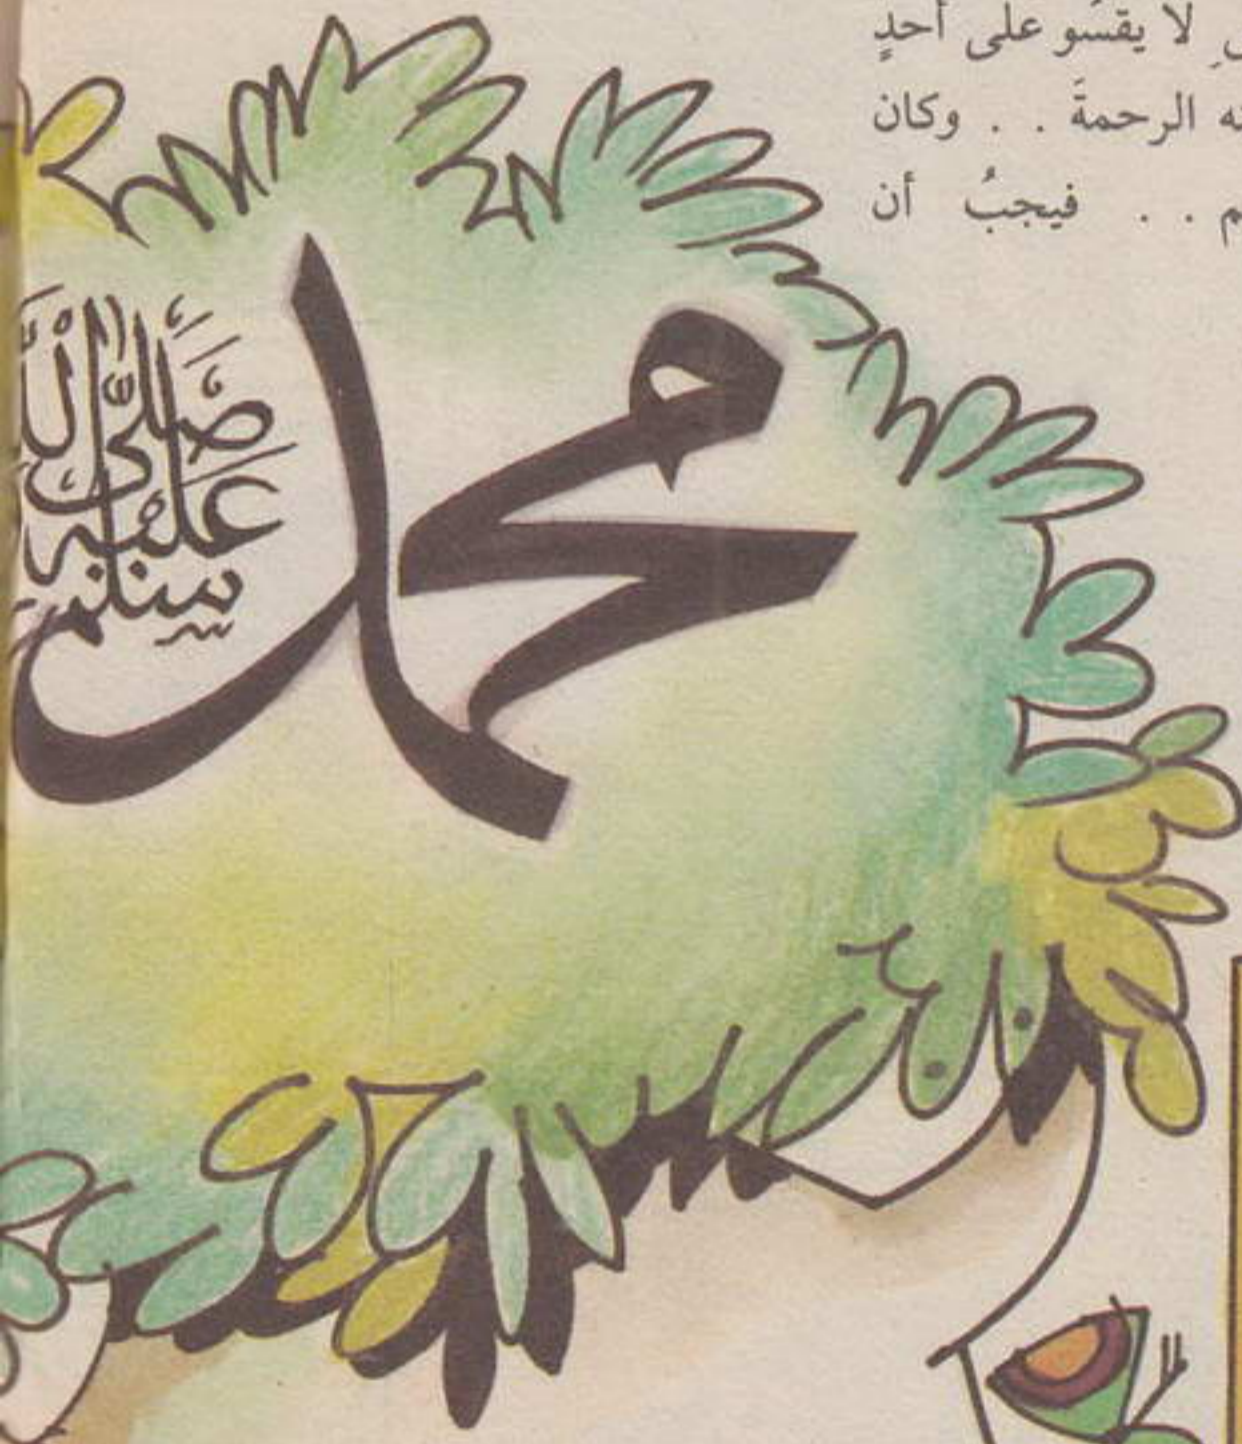 لا يقسُو على أحدٍ
الرحمةَ . . وكان
. . فيجبُ أن
محمد
صَلَّى اللَّه
عَلَيْهِ
وسلم